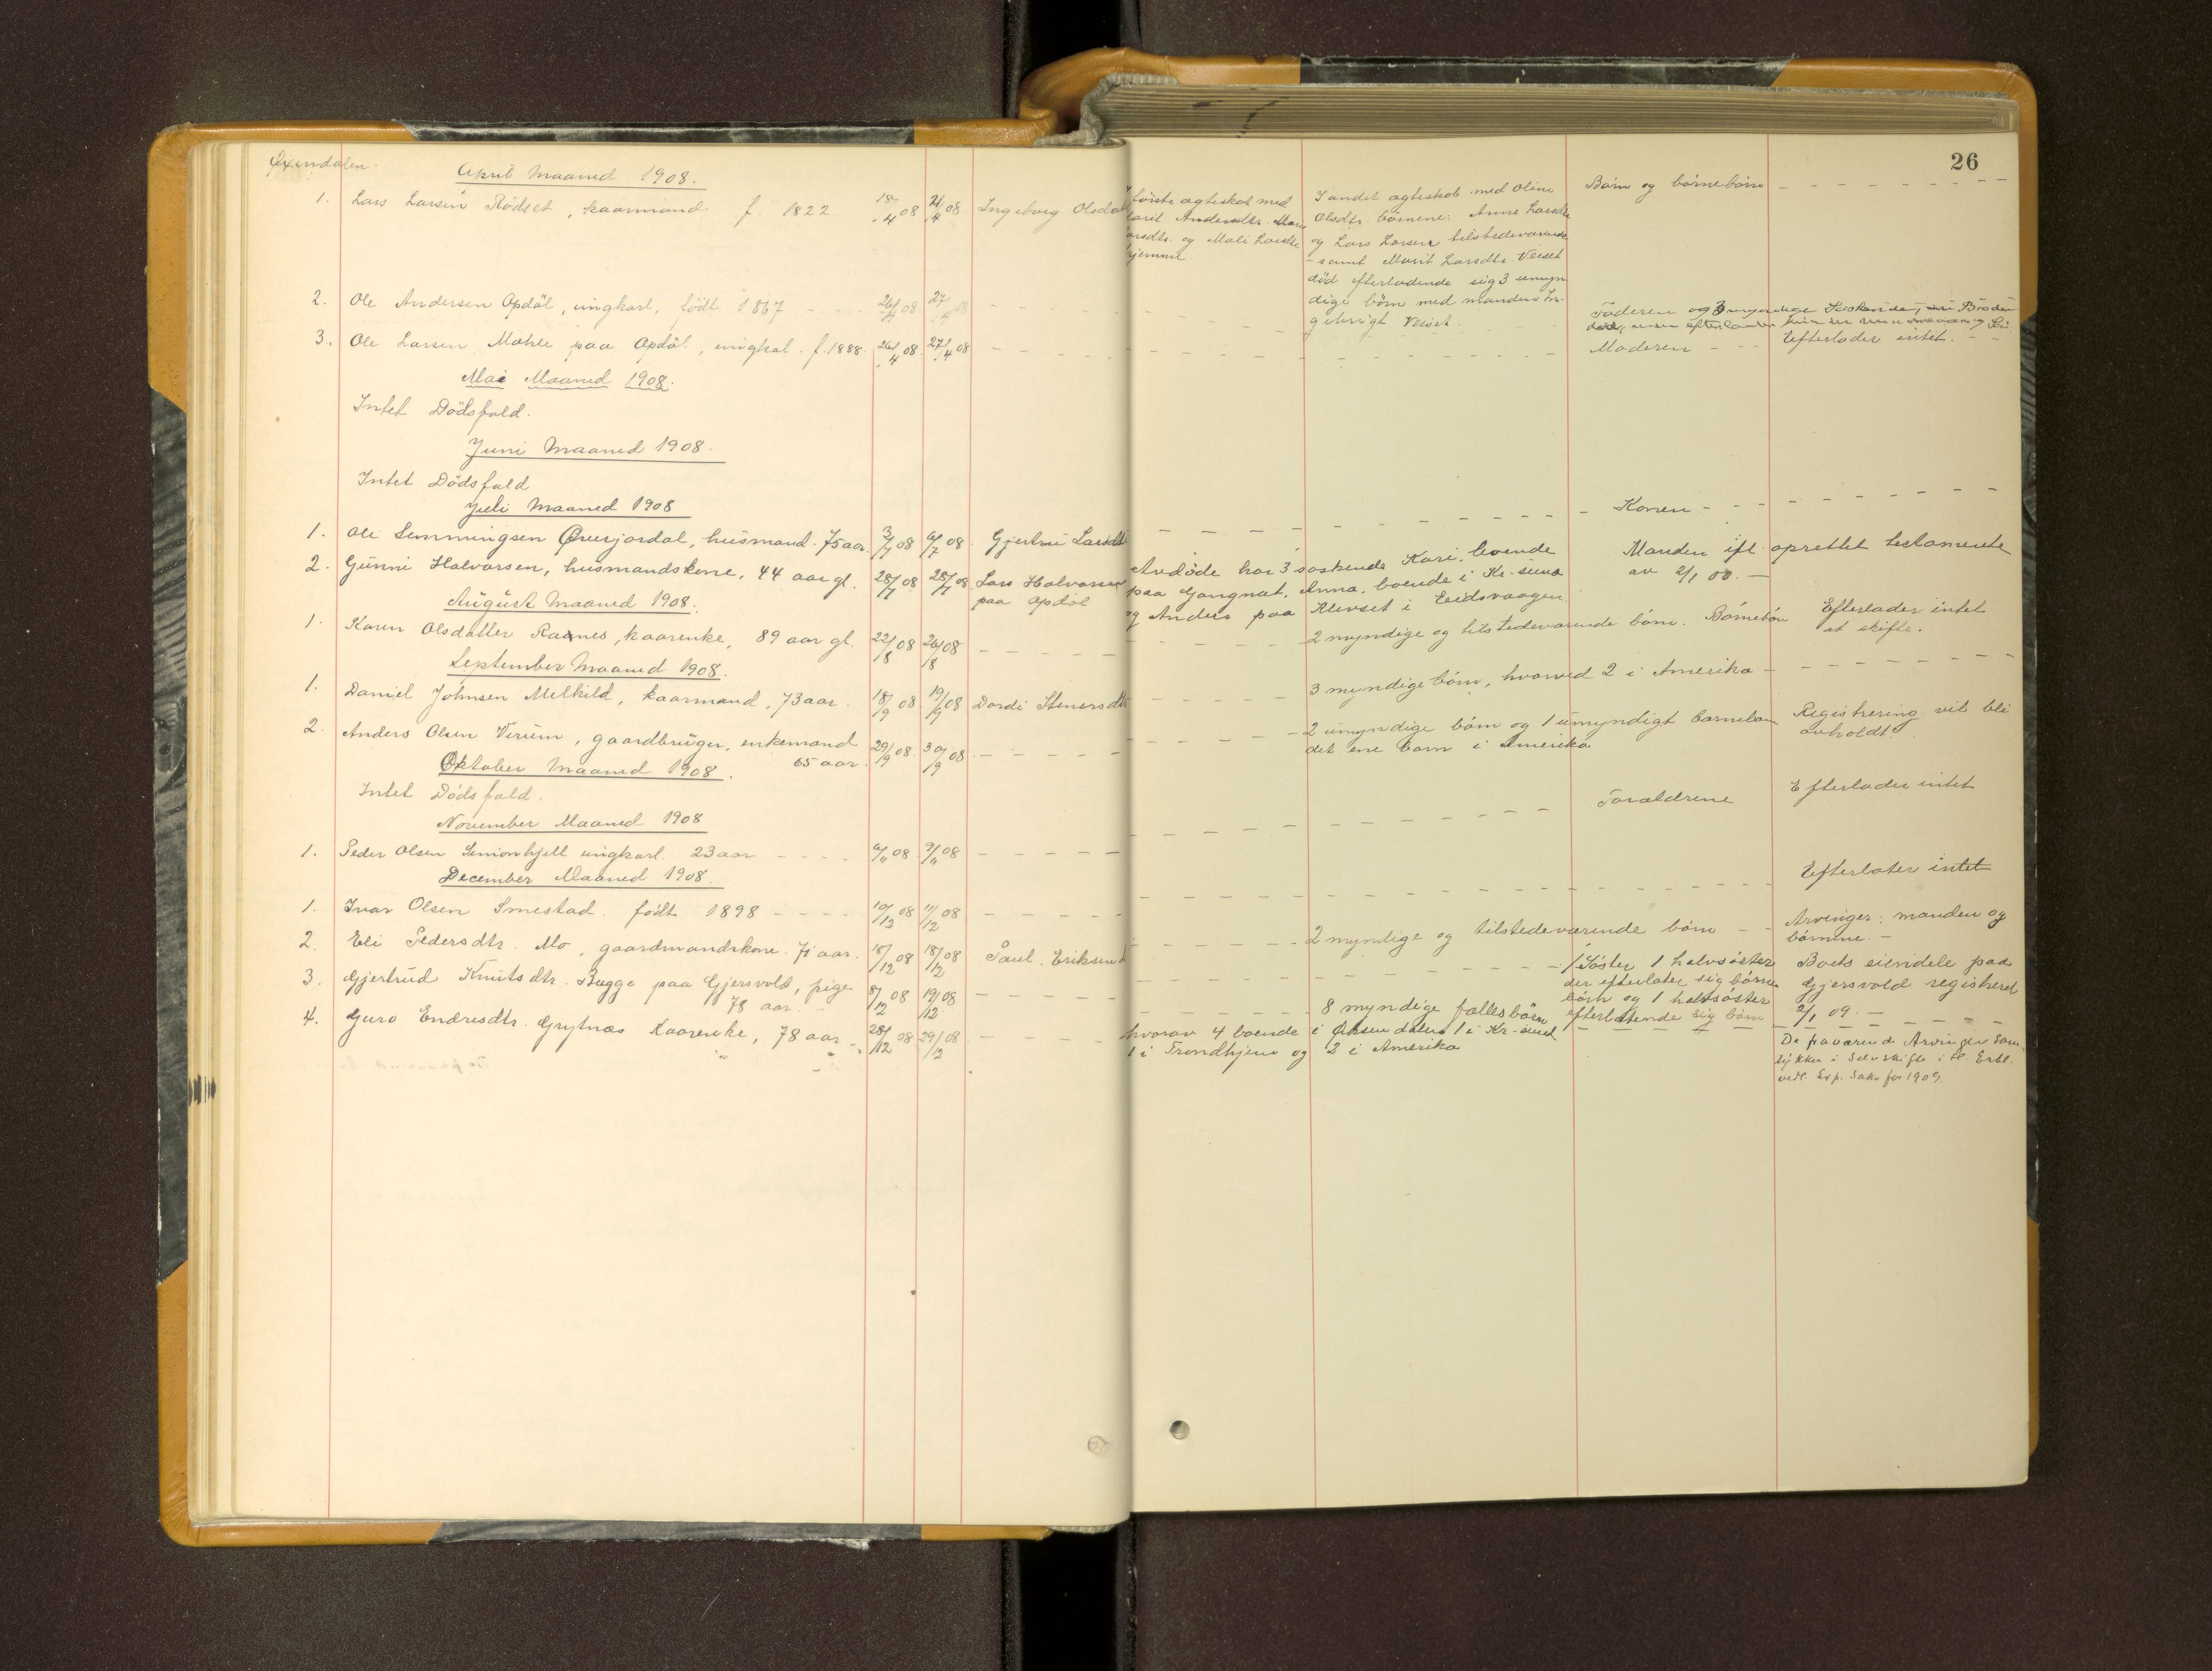 Øxendalen.
April Maaned 1908.
1. Lars Larsen Rödset, kaarmand f. 1822 18/4 08 21/4 08 Ingeborg Olsdat
første ægteskab med
Marit Andersdtr.
Larsdtr. og Mali Larsdtr
hjemme
I andet ægteskab med Oline
Olsdtr. børnene: Anne Larsdtr
og Lars Larsen tilstedeværende
- samt Marit Larsdtr. Veiset
död efterladende sig 3 umyn
dige børn med manden In-
gebrigt Veiset.
Børn og børnebørn - - - - - - - -
26
2. Ole Andersen Opdöl, ungkarl, født 1867 - - - 26/4 08 27/4 08 - - -
Faderen og 3 myndige Søskende,
3. Ole Larsen Mæhle paa Opdöl, ungkal. f. 1888. 26/4 08 27/4 08 - - - -
Moderen - - - Efterlader intet. - -
Mai Maaned 1908.
Intet Dödsfald.
Juni Maaned 1908.
Intet Dödsfald
Juli Maaned 1908
1. Ole Lemmingsen Överjordal, husmand. 75 aar. 3/7 08 6/7 08. Gjertru Larsdtr - - - - - Konen - - - - - -
2. Gunni Halvorsen, husmandskone, 44 aar gl. 28/7 08 28/7 08 Lars Halvorsen
paa Opdöl
Avdøde har 3 søskende Kari, boende
paa Gangnat, Anna, boende i Kr-sund
og Anders paa Klevset i Eidsvaagen
Manden ifl. oprettet testamente
av 2/1 00. -
August Maaned 1908.
1. Karen Olsdatter Raanes, kaarenke, 89 aar gl. 22/8 08 26/8 08 - - - - -
2 myndige og tilstedeværende børn. Børnebörn
Efterlader intet
at skifte.
September Maaned 1908.
1. Daniel Johnsen Melkild, kaarmand, 73 aar. 18/9 08 19/9 08 Dordi Stenersdtr - - - -
3 myndige børn, hvorved 2 i Amerika - - - - - - -
2. Anders Olsen Virum, gaardbruger, enkemand
65 aar. 29/9 08. 30/9 08 - - - -
2 umyndige børn og 1 umyndigt barnebarn
det ene barn i Amerika
Registrering vil bli
avholdt.
Oktober Maaned 1908.
Intet Dödsfald.
November Maaned 1908
1. Peder Olsen Simonhjell ungkarl. 23 aar - - - - 6/11 08 9/11 08 - - - - -
Forældrene
Efterlader intet
December Maaned 1908.
1. Ivar Olsen Smestad. født 1898 - - - - 10/12 08 11/12 08 - - - - -
Efterlater intet
2. Eli Pedersdtr. Mo, gaardmandskone. 71 aar. 15/12 08 18/12 08 Paul Eriksen
2 myndige og tilstedeværende børn - -
Arvinger: manden og
børnene. -
3. Gjertrud Knutsdtr. Bugge paa Gjersvold, pige
78 aar. 8/12 08 19/12 08 - - - -
1 Søster 1 halvsøster
der efterlater sig børne
børn og 1 halvsøster
efterlatende sig børn
Boets eiendele paa
Gjersvold registrert
2/1 09. -
4. Guro Endresdtr. Grytnæs Kaarenke, 78 aar - 28/12 08 29/12 08 - - - -
8 myndige fællesbørn
hvorav 4 boende i Øksendalen 1 i Kr-sund
1 i Trondhjem og 2 i Amerika
De fraværende Arvinger sam-
tykker i Selvskifte i fl. Erkl.
vedl. Exp. Saker for 1909.